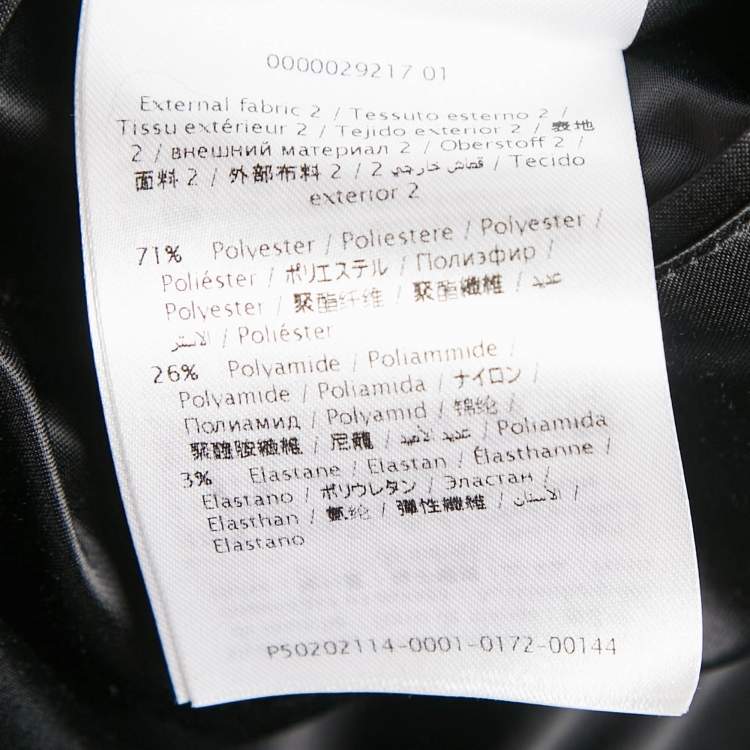 0000029217 01
External fabric 2 / Tessuto esterno 2 /
Tissu extérieur 2 / Tejido exterior 2 / 表地
2 / внешний материал 2 / Oberstoff 2 /
面料 2 / 外部布料 2 / 2 قماش خارجي / Tecido
exterior 2
71% Polyester / Poliestere / Polyester /
Poliéster / ポリエステル / Полиэфир /
Polyester / 聚酯纤维 / 聚酯纖維 / عديد
الاستر / Poliéster
26% Polyamide / Poliammide /
Polyamide / Poliamida / ナイロン /
Полиамид / Polyamid / 锦纶 /
聚醯胺纖維 / 尼龍 / عديد الأميد / Poliamida
3% Elastane / Elastan / Élasthanne /
Elastano / ポリウレタン / Эластан /
Elasthan / 氨纶 / 彈性纖維 / الاستان /
Elastano
P50202114-0001-0172-00144